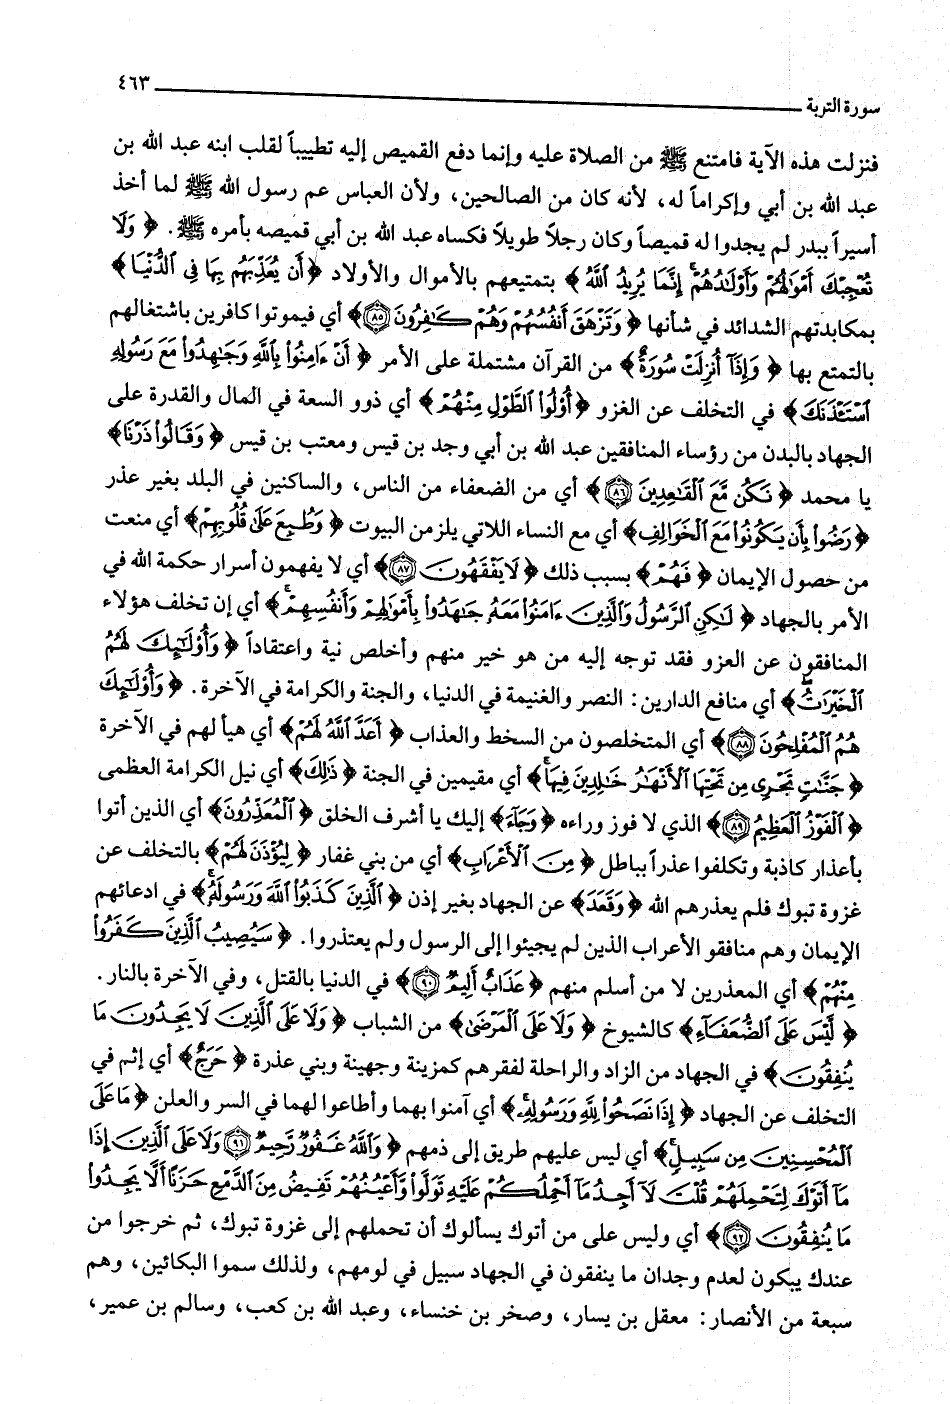 سورة التربة
٤٦٣
فنزلت هذه الآية فامتنع ﷺ من الصلاة عليه وإنما دفع القميص إليه تطييباً لقلب ابنه عبد الله بن
عبد الله بن أبي وإكراماً له، لأنه كان من الصالحين، ولأن العباس عم رسول الله ﷺ لما أخذ
أسيراً ببدر لم يجدوا له قميصاً وكان رجلاً طويلاً فكساه عبد الله بن أبي قميصه بأمره ﷺ. ﴿ وَلَا
تُعْجِبْكَ أَمْوَٰلُهُمْ وَأَوْلَـٰدُهُمْ ۚ إِنَّمَا يُرِيدُ ٱللَّهُ ﴾ بتمتيعهم بالأموال والأولاد ﴿أَن يُعَذِّبَهُم بِهَا فِى ٱلدُّنْيَا ﴾
بمكابدتهم الشدائد في شأنها ﴿ وَتَزْهَقَ أَنفُسُهُمْ وَهُمْ كَـٰفِرُونَ ٨٥﴾ أي فيموتوا كافرين باشتغالهم
بالتمتع بها ﴿ وَإِذَآ أُنزِلَتْ سُورَةٌ﴾ من القرآن مشتملة على الأمر ﴿ أَنْ ءَامِنُوا۟ بِٱللَّهِ وَجَـٰهِدُوا۟ مَعَ رَسُولِهِ
ٱسْتَـْٔذَنَكَ﴾ في التخلف عن الغزو ﴿أُو۟لُوا۟ ٱلطَّوْلِ مِنْهُمْ ﴾ أي ذوو السعة في المال والقدرة على
الجهاد بالبدن من رؤساء المنافقين عبد الله بن أبي وجد بن قيس ومعتب بن قيس ﴿ وَقَالُوا۟ ذَرْنَا﴾
يا محمد ﴿ نَكُن مَّعَ ٱلْقَـٰعِدِينَ ٨٦﴾ أي من الضعفاء من الناس، والساكنين في البلد بغير عذر
﴿رَضُوا۟ بِأَن يَكُونُوا۟ مَعَ ٱلْخَوَالِفِ﴾ أي مع النساء اللاتي يلزمن البيوت ﴿ وَطُبِعَ عَلَىٰ قُلُوبِهِمْ﴾ أي منعت
من حصول الإيمان ﴿ فَهُمْ﴾ بسبب ذلك ﴿لَا يَفْقَهُونَ ٨٧﴾ أي لا يفهمون أسرار حكمة الله في
الأمر بالجهاد ﴿ لَـٰكِنِ ٱلرَّسُولُ وَٱلَّذِينَ ءَامَنُوا۟ مَعَهُۥ جَـٰهَدُوا۟ بِأَمْوَٰلِهِمْ وَأَنفُسِهِمْ ۚ﴾ أي إن تخلف هؤلاء
المنافقون عن العزو فقد توجه إليه من هو خير منهم وأخلص نية واعتقاداً ﴿ وَأُو۟لَـٰٓئِكَ لَهُمُ
ٱلْخَيْرَٰتُ ۖ﴾ أي منافع الدارين: النصر والغنيمة في الدنيا، والجنة والكرامة في الآخرة. ﴿ وَأُو۟لَـٰٓئِكَ
هُمُ ٱلْمُفْلِحُونَ ٨٨﴾ أي المتخلصون من السخط والعذاب ﴿ أَعَدَّ ٱللَّهُ لَهُمْ﴾ أي هيأ لهم في الآخرة
﴿ جَنَّـٰتٍ تَجْرِى مِن تَحْتِهَا ٱلْأَنْهَـٰرُ خَـٰلِدِينَ فِيهَا ۚ﴾ أي مقيمين في الجنة ﴿ذَٰلِكَ﴾ أي نيل الكرامة العظمى
﴿ ٱلْفَوْزُ ٱلْعَظِيمُ ٨٩﴾ الذي لا فوز وراءه ﴿وَجَآءَ﴾ إليك يا أشرف الخلق ﴿ ٱلْمُعَذِّرُونَ﴾ أي الذين أتوا
بأعذار كاذبة وتكلفوا عذراً بباطل ﴿ مِنَ ٱلْأَعْرَابِ﴾ أي من بني غفار ﴿ لِيُؤْذَنَ لَهُمْ ﴾ بالتخلف عن
غزوة تبوك فلم يعذرهم الله ﴿وَقَعَدَ﴾ عن الجهاد بغير إذن ﴿ ٱلَّذِينَ كَذَبُوا۟ ٱللَّهَ وَرَسُولَهُۥ ۚ﴾ في ادعائهم
الإيمان وهم منافقو الأعراب الذين لم يجيئوا إلى الرسول ولم يعتذروا. ﴿ سَيُصِيبُ ٱلَّذِينَ كَفَرُوا۟
مِنْهُمْ ﴾ أي المعذرين لا من أسلم منهم ﴿عَذَابٌ أَلِيمٌ ٩٠﴾ في الدنيا بالقتل، وفي الآخرة بالنار.
﴿ لَّيْسَ عَلَى ٱلضُّعَفَآءِ﴾ كالشيوخ ﴿ وَلَا عَلَى ٱلْمَرْضَىٰ﴾ من الشباب ﴿ وَلَا عَلَى ٱلَّذِينَ لَا يَجِدُونَ مَا
يُنفِقُونَ﴾ في الجهاد من الزاد والراحلة لفقرهم كمزينة وجهينة وبني عذرة ﴿ حَرَجٌ﴾ أي إثم في
التخلف عن الجهاد ﴿إِذَا نَصَحُوا۟ لِلَّهِ وَرَسُولِهِۦ ۚ﴾ أي آمنوا بهما وأطاعوا لهما في السر والعلن ﴿ مَا عَلَى
ٱلْمُحْسِنِينَ مِن سَبِيلٍ ۚ﴾ أي ليس عليهم طريق إلى ذمهم ﴿ وَٱللَّهُ غَفُورٌ رَّحِيمٌ ٩١ وَلَا عَلَى ٱلَّذِينَ إِذَا
مَآ أَتَوْكَ لِتَحْمِلَهُمْ قُلْتَ لَآ أَجِدُ مَآ أَحْمِلُكُمْ عَلَيْهِ تَوَلَّوا۟ وَّأَعْيُنُهُمْ تَفِيضُ مِنَ ٱلدَّمْعِ حَزَنًا أَلَّا يَجِدُوا۟
مَا يُنفِقُونَ ٩٢﴾ أي وليس على من أتوك يسألوك أن تحملهم إلى غزوة تبوك، ثم خرجوا من
عندك يبكون لعدم وجدان ما ينفقون في الجهاد سبيل في لومهم، ولذلك سموا البكائين، وهم
سبعة من الأنصار: معقل بن يسار، وصخر بن خنساء، وعبد الله بن كعب، وسالم بن عمير،